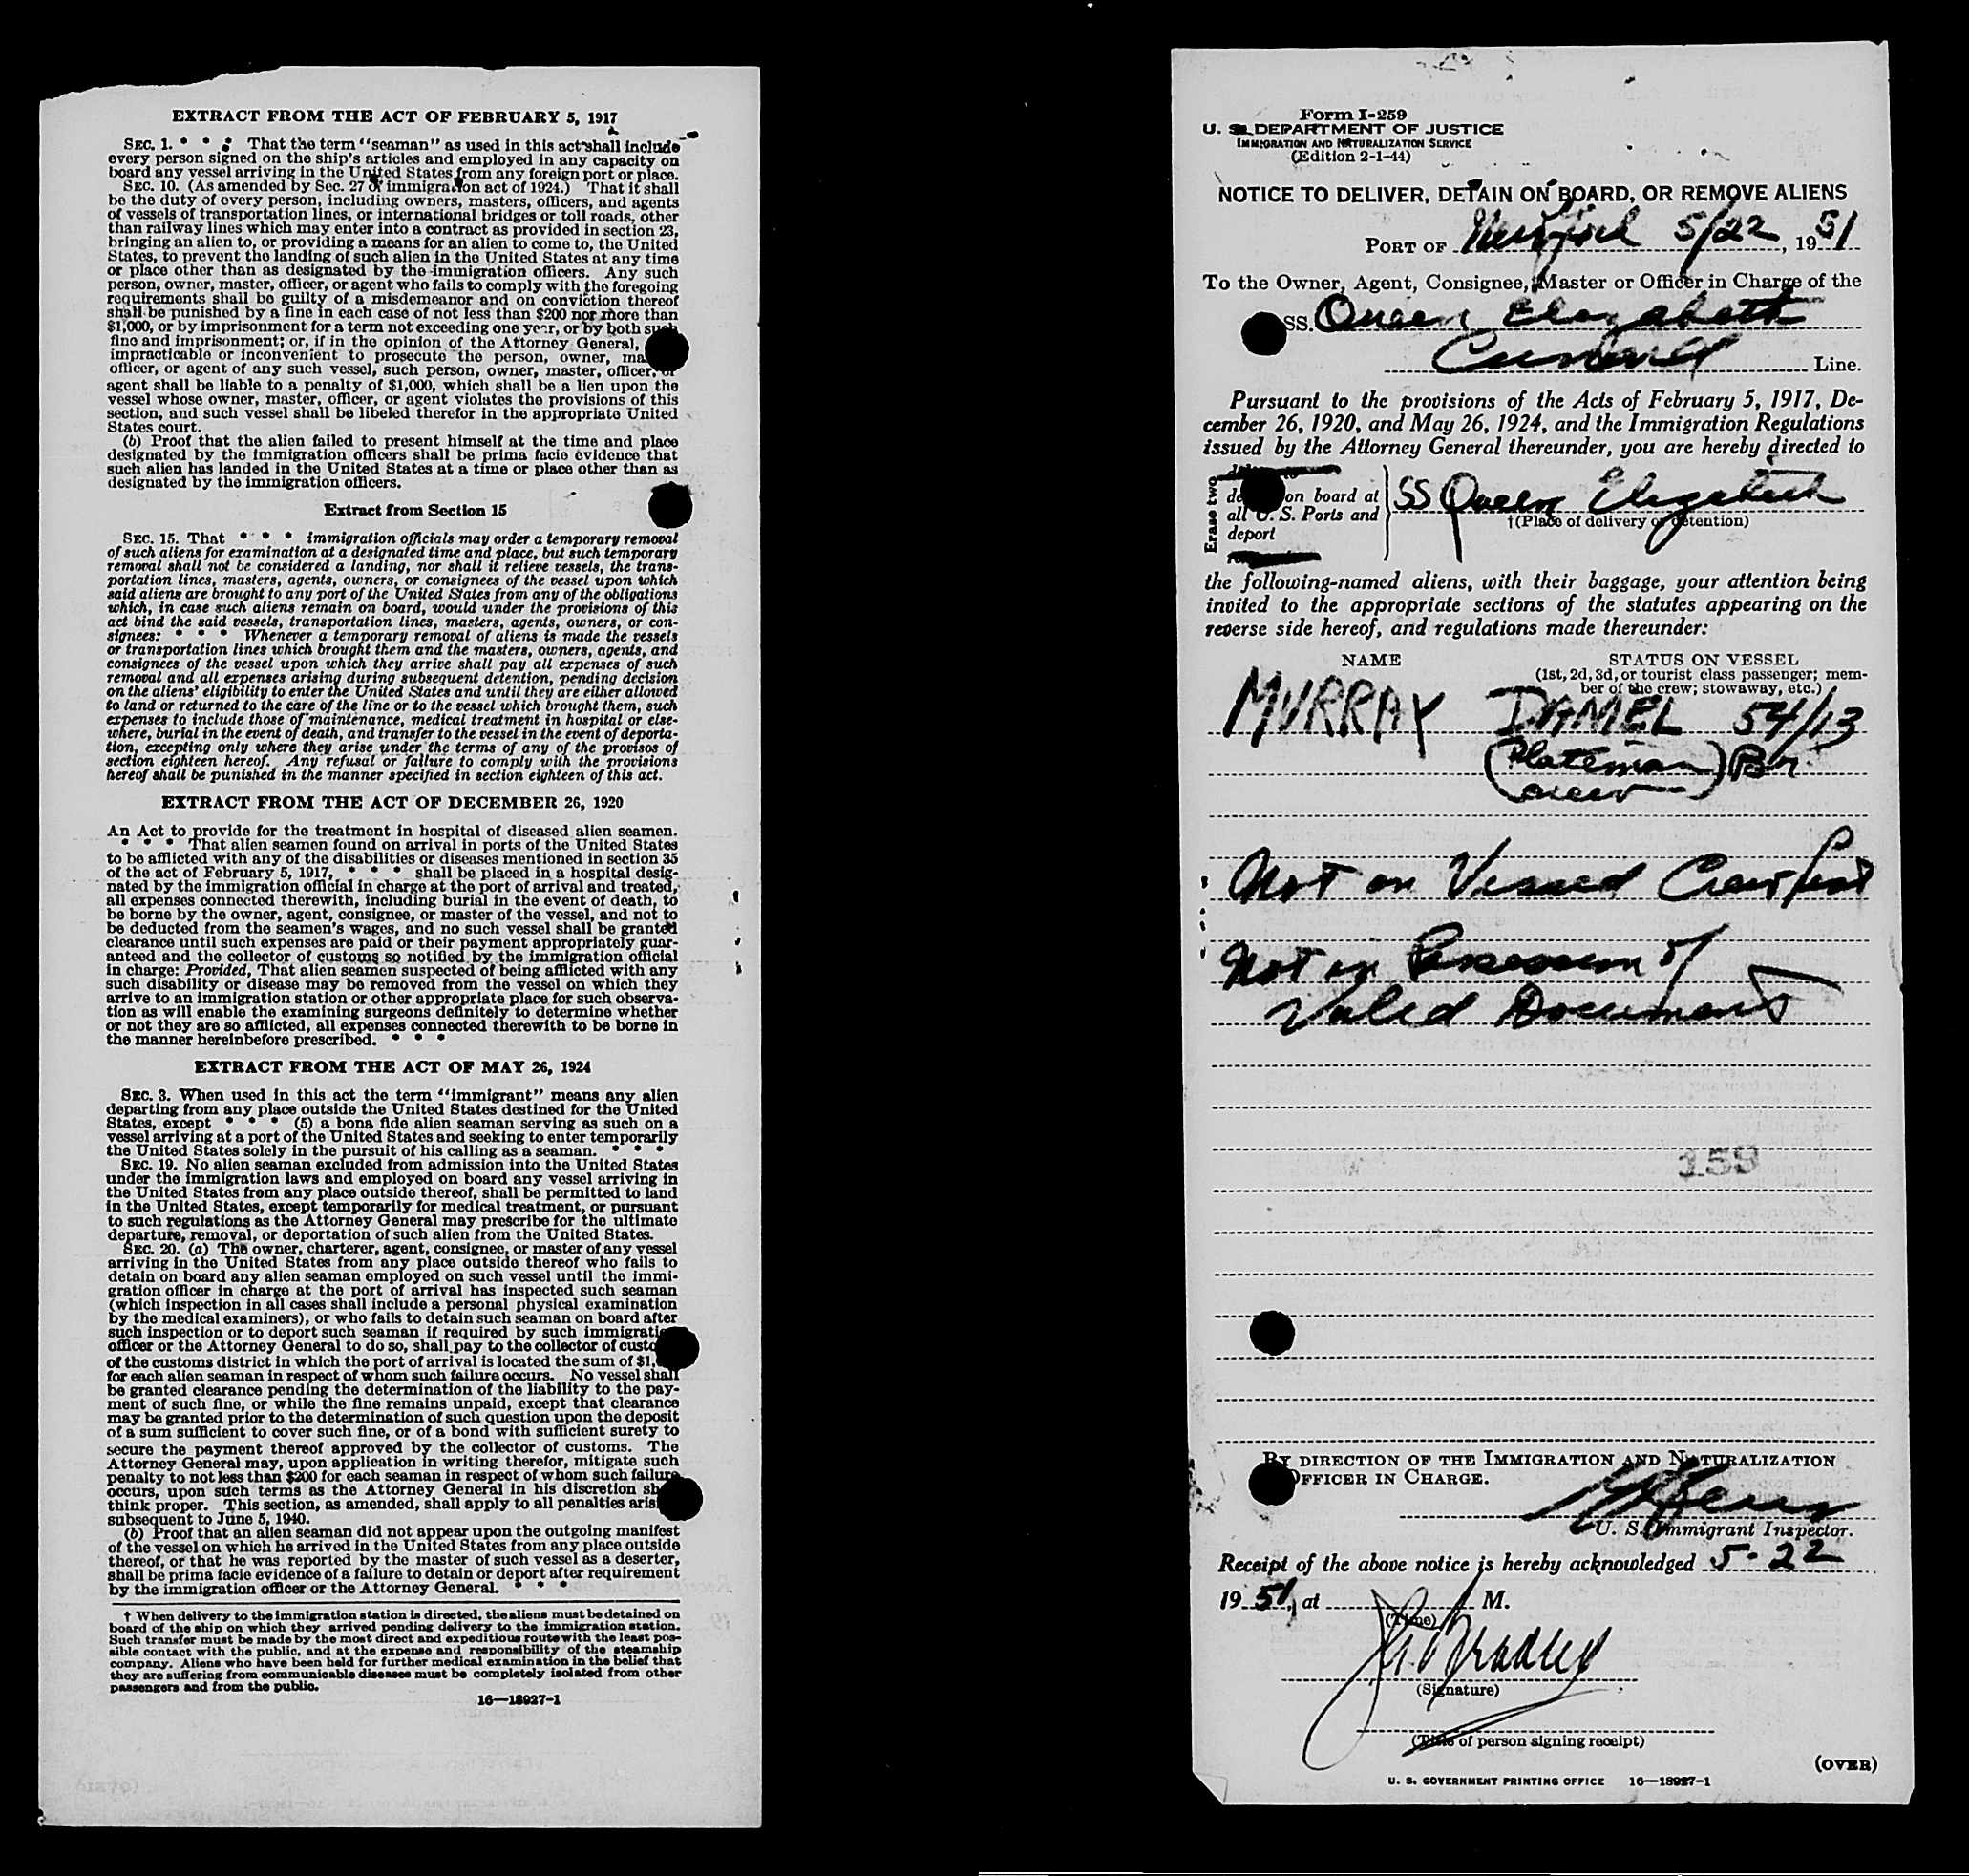 EXTRACT FROM THE ACT OF FEBRUARY 5, 1917
SEC. 1. * * * That the term "seaman" as used in this act shall include
every person signed on the ship's articles and employed in any capacity on
board any vessel arriving in the United States from any foreign port or place.
SEC. 10. (As amended by Sec. 27 of immigration act of 1924.) That it shall
be the duty of every person, including owners, masters, officers, and agents
of vessels of transportation lines, or international bridges or toll roads, other
than railway lines which may enter into a contract as provided in section 23,
bringing an alien to, or providing a means for an alien to come to, the United
States, to prevent the landing of such alien in the United States at any time
or place other than as designated by the immigration officers. Any such
person, owner, master, officer, or agent who fails to comply with the foregoing
requirements shall be guilty of a misdemeanor and on conviction thereof
shall be punished by a fine in each case of not less than $200 nor more than
$1,000, or by imprisonment for a term not exceeding one year, or by both such
fine and imprisonment; or, if in the opinion of the Attorney General,
impracticable or inconvenient to prosecute the person, owner, ma
officer, or agent of any such vessel, such person, owner, master, officer, or
agent shall be liable to a penalty of $1,000, which shall be a lien upon the
vessel whose owner, master, officer, or agent violates the provisions of this
section, and such vessel shall be libeled therefor in the appropriate United
States court.
(b) Proof that the alien failed to present himself at the time and place
designated by the immigration officers shall be prima facie evidence that
such alien has landed in the United States at a time or place other than as
designated by the immigration officers.
Extract from Section 15
SEC. 15. That * * * immigration officials may order a temporary removal
of such aliens for examination at a designated time and place, but such temporary
removal shall not be considered a landing, nor shall it relieve vessels, the trans-
portation lines, masters, agents, owners, or consignees of the vessel upon which
said aliens are brought to any port of the United States from any of the obligations
which, in case such aliens remain on board, would under the provisions of this
act bind the said vessels, transportation lines, masters, agents, owners, or con-
signees: * * * Whenever a temporary removal of aliens is made the vessels
or transportation lines which brought them and the masters, owners, agents, and
consignees of the vessel upon which they arrive shall pay all expenses of such
removal and all expenses arising during subsequent detention, pending decision
on the aliens' eligibility to enter the United States and until they are either allowed
to land or returned to the care of the line or to the vessel which brought them, such
expenses to include those of maintenance, medical treatment in hospital or else-
where, burial in the event of death, and transfer to the vessel in the event of deporta-
tion, excepting only where they arise under the terms of any of the provisos of
section eighteen hereof. Any refusal or failure to comply with the provisions
hereof shall be punished in the manner specified in section eighteen of this act.
EXTRACT FROM THE ACT OF DECEMBER 26, 1920
An Act to provide for the treatment in hospital of diseased alien seamen.
* * * That alien seamen found on arrival in ports of the United States
to be afflicted with any of the disabilities or diseases mentioned in section 35
of the act of February 5, 1917, * * * shall be placed in a hospital desig-
nated by the immigration official in charge at the port of arrival and treated,
all expenses connected therewith, including burial in the event of death, to
be borne by the owner, agent, consignee, or master of the vessel, and not to
be deducted from the seamen's wages, and no such vessel shall be granted
clearance until such expenses are paid or their payment appropriately guar-
anteed and the collector of customs so notified by the immigration official
in charge: Provided, That alien seamen suspected of being afflicted with any
such disability or disease may be removed from the vessel on which they
arrive to an immigration station or other appropriate place for such observa-
tion as will enable the examining surgeons definitely to determine whether
or not they are so afflicted, all expenses connected therewith to be borne in
the manner hereinbefore prescribed. * * *
EXTRACT FROM THE ACT OF MAY 26, 1924
SEC. 3. When used in this act the term "immigrant" means any alien
departing from any place outside the United States destined for the United
States, except * * * (5) a bona fide alien seaman serving as such on a
vessel arriving at a port of the United States and seeking to enter temporarily
the United States solely in the pursuit of his calling as a seaman. * * *
SEC. 19. No alien seaman excluded from admission into the United States
under the immigration laws and employed on board any vessel arriving in
the United States from any place outside thereof, shall be permitted to land
in the United States, except temporarily for medical treatment, or pursuant
to such regulations as the Attorney General may prescribe for the ultimate
departure, removal, or deportation of such alien from the United States.
SEC. 20. (a) The owner, charterer, agent, consignee, or master of any vessel
arriving in the United States from any place outside thereof who fails to
detain on board any alien seaman employed on such vessel until the immi-
gration officer in charge at the port of arrival has inspected such seaman
(which inspection in all cases shall include a personal physical examination
by the medical examiners), or who fails to detain such seaman on board after
such inspection or to deport such seaman if required by such immigratio
officer or the Attorney General to do so, shall pay to the collector of custo
of the customs district in which the port of arrival is located the sum of $1,
for each alien seaman in respect of whom such failure occurs. No vessel shall
be granted clearance pending the determination of the liability to the pay-
ment of such fine, or while the fine remains unpaid, except that clearance
may be granted prior to the determination of such question upon the deposit
of a sum sufficient to cover such fine, or of a bond with sufficient surety to
secure the payment thereof approved by the collector of customs. The
Attorney General may, upon application in writing therefor, mitigate such
penalty to not less than $200 for each seaman in respect of whom such failure
occurs, upon such terms as the Attorney General in his discretion sh
think proper. This section, as amended, shall apply to all penalties aris
subsequent to June 5, 1940.
(b) Proof that an alien seaman did not appear upon the outgoing manifest
of the vessel on which he arrived in the United States from any place outside
thereof, or that he was reported by the master of such vessel as a deserter,
shall be prima facie evidence of a failure to detain or deport after requirement
by the immigration officer or the Attorney General. * * *
† When delivery to the immigration station is directed, the aliens must be detained on
board of the ship on which they arrived pending delivery to the immigration station.
Such transfer must be made by the most direct and expeditious route with the least pos-
sible contact with the public, and at the expense and responsibility of the steamship
company. Aliens who have been held for further medical examination in the belief that
they are suffering from communicable diseases must be completely isolated from other
passengers and from the public.
16—18927-1
Form I-259
U. S. DEPARTMENT OF JUSTICE
IMMIGRATION AND NATURALIZATION SERVICE
(Edition 2-1-44)
NOTICE TO DELIVER, DETAIN ON BOARD, OR REMOVE ALIENS
PORT OF New York 5/22, 1951
To the Owner, Agent, Consignee, Master or Officer in Charge of the
SS. Queen Elizabeth
Cunard Line.
Pursuant to the provisions of the Acts of February 5, 1917, De-
cember 26, 1920, and May 26, 1924, and the Immigration Regulations
issued by the Attorney General thereunder, you are hereby directed to
Erase two
de on board at
all U. S. Ports and
deport
SS Queen Elizabeth
†(Place of delivery or detention)
the following-named aliens, with their baggage, your attention being
invited to the appropriate sections of the statutes appearing on the
reverse side hereof, and regulations made thereunder:
NAME STATUS ON VESSEL
(1st, 2d, 3d, or tourist class passenger; mem-
ber of the crew; stowaway, etc.)
MURRAY DANIEL 54/13
(Plateman) Br.
crew
Not on Vessel Crew list
Not in Possession of
Valid Document
159
BY DIRECTION OF THE IMMIGRATION AND NATURALIZATION
OFFICER IN CHARGE.
U. S. Immigrant Inspector.
Receipt of the above notice is hereby acknowledged 5-22
1951, at M.
(Time)
Bradley
(Signature)
(Title of person signing receipt)
(OVER)
U. S. GOVERNMENT PRINTING OFFICE 16—18927-1